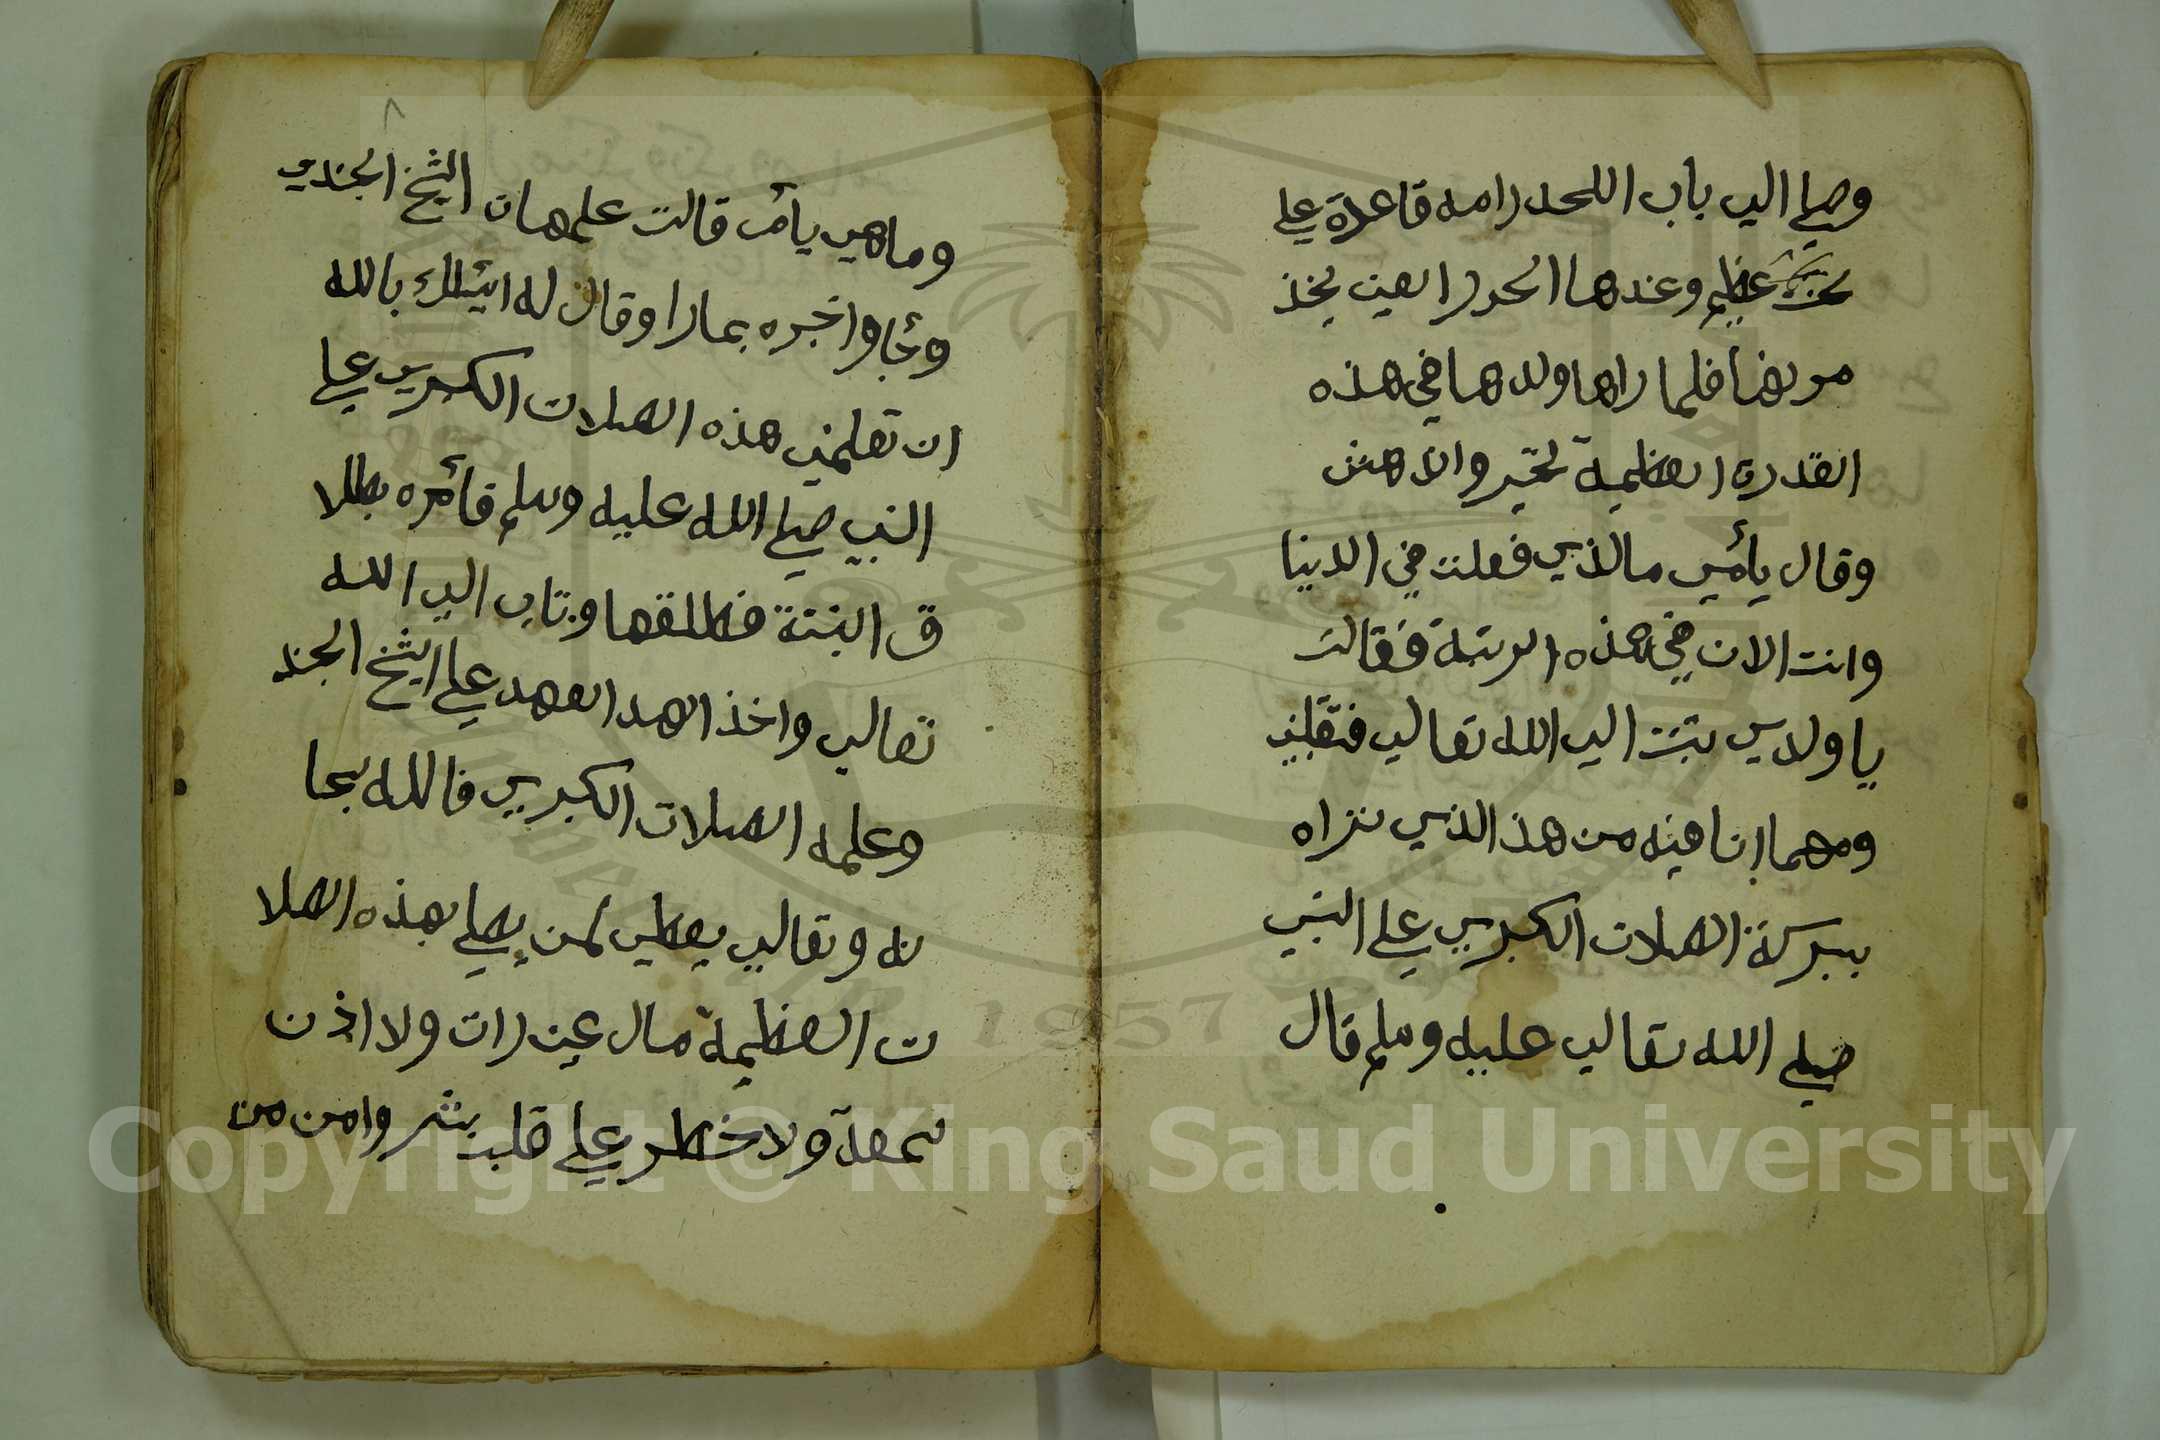 وصلي الي باب اللحد رامه قاعدة علي
تخت عظيم وعندها الحور العين يخذ
موهنا فلما راها ولدها في هذه
القدرة العظيمة تحير واندهش
وقال يأمي مالذي فعلت في الدينا
وانت الان في هذه الرتبة فقالت
يا ولدي تبت الي الله تعالي فتقبلني
ومهما انا فيه من هذ الذي تراه
ببركة الصلات الكبري علي النبي
صلي الله تعالي عليه وسلم قال
٨
وماهي يأم قالت علمهان الشيخ الجندي
وجأ واخبره بمارا وقال له اسئلك بالله
ان تعلمني هذه الصلات الكبري علي
النبي صلي الله عليه وسلم فأمره بطلا
ق البنتة فطلقها وتاب الي الله
تعالي واخذ العهد العهد علي الشيخ الجند
وعلمه الصلات الكبري فالله سبحا
نه وتعالي يعطي لمن يصلي بهذه الصلا
ت العظيمة مال عين رات ولا اذن
سمعة ولا خطر علي قلب بشر وامن من
Copyright © King Saud University
1957